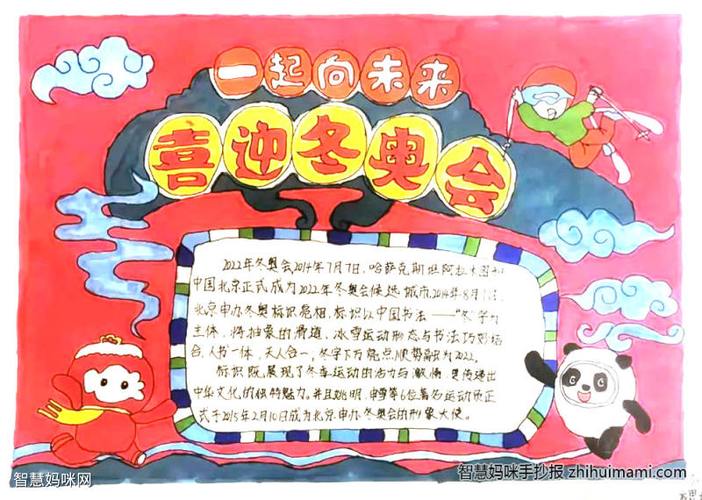 一起向未来
喜迎冬奥会
2022年冬奥会2014年7月7日,哈萨克斯坦阿拉木图和
中国北京正式成为2022年冬奥会候选城市,2014年8月1日,
北京申办冬奥标识亮相,标识以中国书法——“冬”字为
主体,将抽象的滑道、冰雪运动形态与书法巧妙结
合,人书一体,天人合一,冬字下方两点顺势融为2022。
标识既展现了冬季运动的活力与激情,更传递出
中华文化的独特魅力。并且姚明、申雪等6位著名运动员正
式于2015年2月10日成为北京申办冬奥会的形象大使。
智慧妈咪网
智慧妈咪手抄报 zhihuimami.com